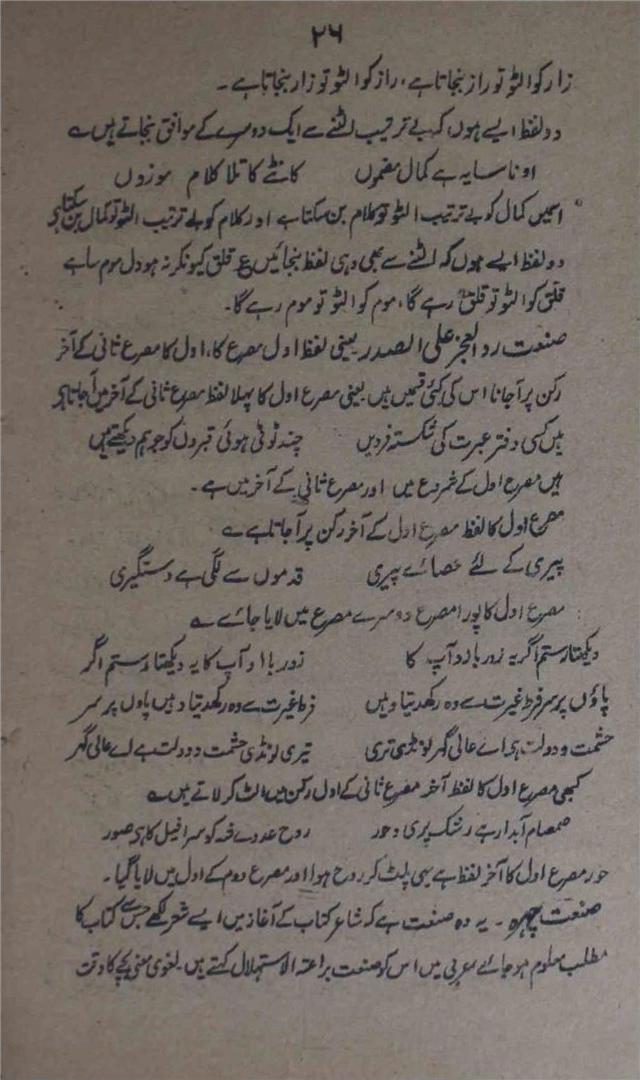 ۲۶
زار کو الٹو تو راز بنجاتا ہے، راز کو الٹو تو زار بنجاتا ہے۔
دو لفظ ایسے ہوں کہ بے ترتیب الٹنے سے ایک دوسرے کے موافق بنجاتے ہیں ؎
اوناسا یہ ہے کمال مضموں کانٹے کا تلا کلام موزوں
اسمیں کمال کو بے ترتیب الٹو تو کلام بن سکتا ہے اور کلام کو بے ترتیب الٹو تو کمال بن سکتا ہے
دو لفظ ایسے ہوں کہ الٹنے سے بھی وہی لفظ بنجائیں ع قلق کیونکر نہ ہو دل موم سا ہے
قلق کو الٹو تو قلق رہے گا، موم کو الٹو تو موم رہے گا۔
صنعت رد العجز علی الصدر یعنی لفظ اول مصرع کا، اول کا مصرع ثانی کے آخر
رکن پر آجانا اس کی کئی قسمیں ہیں یعنی مصرع اول کا پہلا لفظ مصرع ثانی کے آخر میں آجاتا ہے
ہیں کسی دفتر عبرت کی شکستہ فردیں چند ٹوٹی ہوئی قبروں کو جو ہم دیکھتے ہیں
ہیں مصرع اول کے شروع میں اور مصرع ثانی کے آخر میں ہے۔
مصرع اول کا لفظ مصرع اول کے آخر رکن پر آجاتا ہے ؎
پیری کے لئے عصائے پیری قدموں سے لگی ہے دستگیری
مصرع اول کا پورا مصرع دوسرے مصرع میں لایا جائے ؎
دیکھتا رستم اگر یہ زور بازو آپ کا زور بازو آپ کا یہ دیکھتا رستم اگر
پاؤں پر سر فرط غیرت سے وہ رکھدیتا وہیں فرط غیرت سے وہ رکھدیتا وہیں پاؤں پر سر
حشمت و دولت ہے اے عالی گہر لونڈی تری تیری لونڈی حشمت و دولت ہے اے عالی گہر
کبھی مصرع اول کا لفظ آخر مصرع ثانی کے اول رکن میں الٹ کر لاتے ہیں ؎
صمصام آبدار ہے رشک پری و حور روح عدوے شہ کو سرافیل کا ہے صور
حور مصرع اول کا آخر لفظ ہے یہی پلٹ کر روح ہوا اور مصرع دوم کے اول میں لایا گیا۔
صنعت چہرہ۔ یہ وہ صنعت ہے کہ شاعر کتاب کے آغاز میں ایسے شعر لکھے جس سے کتاب کا
مطلب معلوم ہو جائے عربی میں اس کو صنعت براعتہ الاستہلال کہتے ہیں۔ لغوی معنی بچے کا وقت